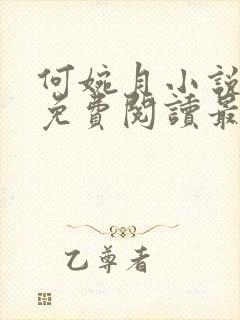 何婉月小說
免費閱讀最
乙尊者